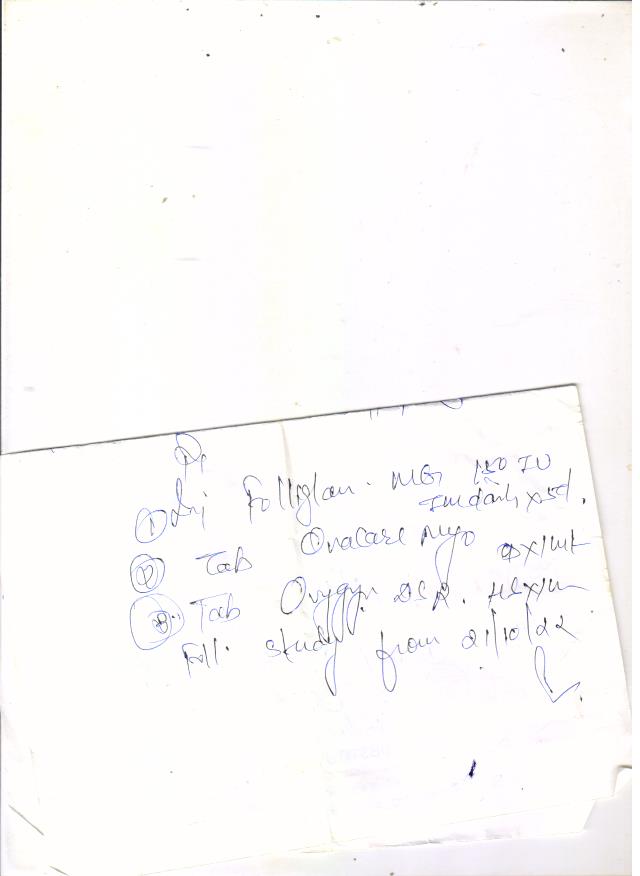 Rx
① Inj Folliglan. MG 150 IU
IM daily x 5d.
② Tab Ovacare Myo OD x 1mt
③ Tab Ovygyn DSR. HS x 1m
Foll. study from 21/10/22